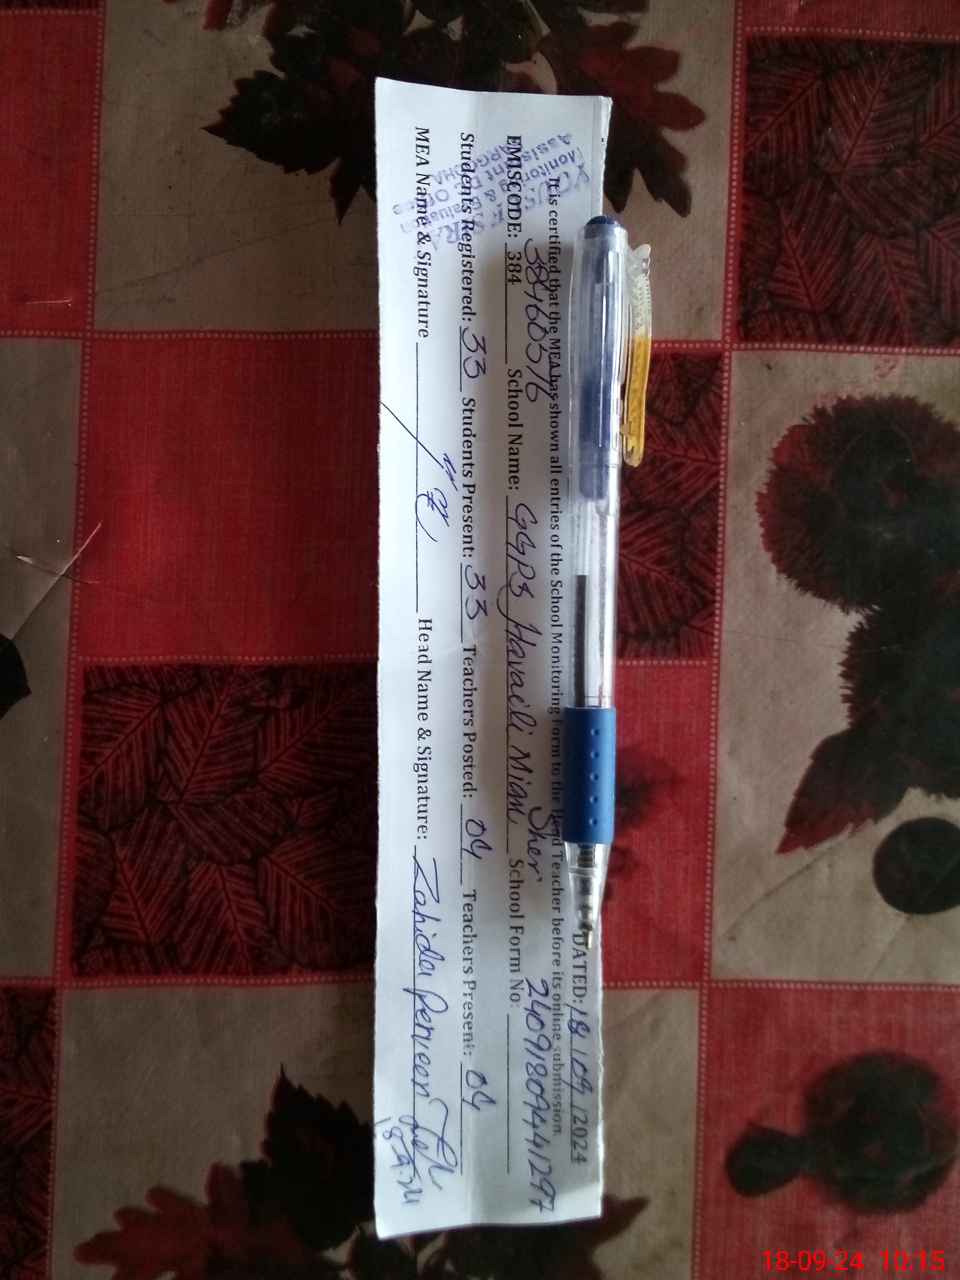 DATED: 18/09/2024
It is certified that the MEA has shown all entries of the School Monitoring Form to the Head Teacher before its online submission.
38460376 Sher
EMISCODE: 384 School Name: GGPS Havaili Mian School Form No: 
Students Registered: 33 Students Present: 33 Teachers Posted: 04 Teachers Present: 04
MEA Name & Signature Head Name & Signature: Zahida Perveen
Monitoring & Evaluation
18-09-24 10:15